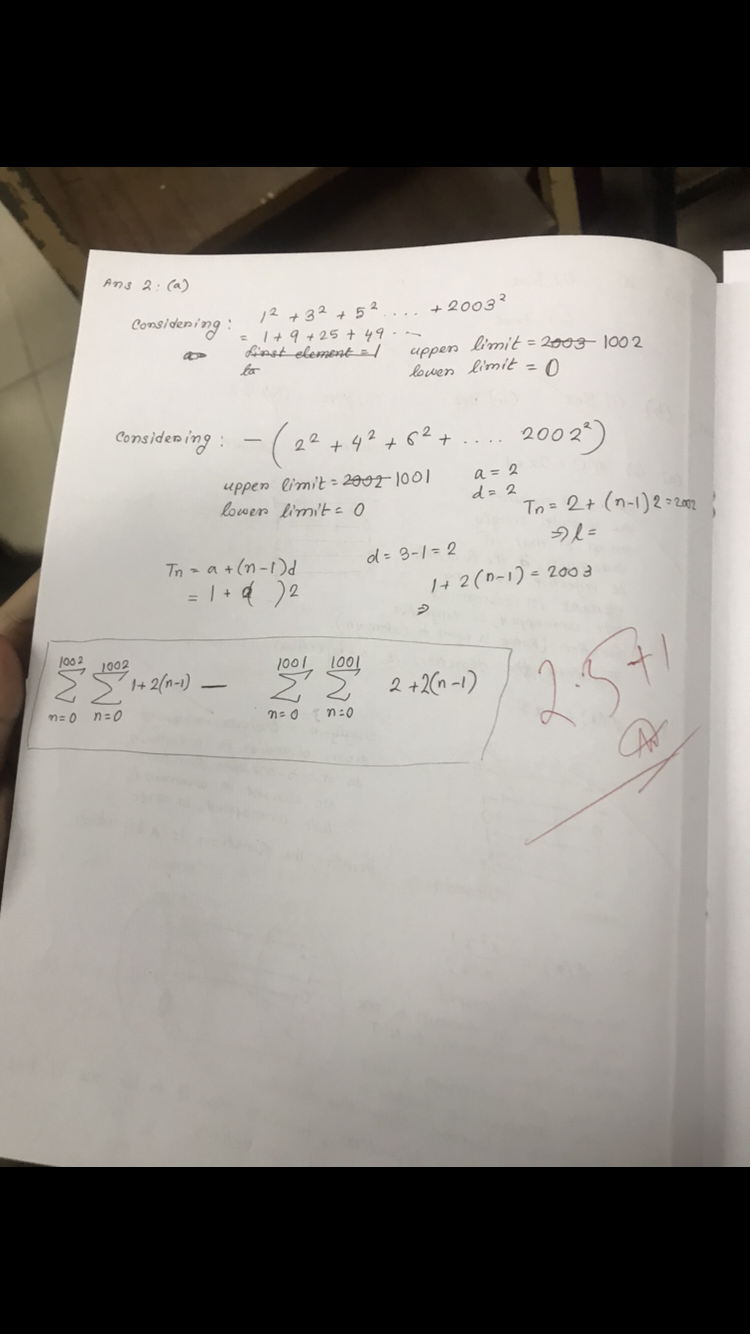 Ans 2: (a)
Considering: 1² + 3² + 5² .... + 2003²
= 1 + 9 + 25 + 49 ...
first element = 1 upper limit = 2003 1002
lower limit = 0
Considering: - (2² + 4² + 6² + .... 2002²)
upper limit = 2002 1001 a = 2
lower limit = 0 d = 2
Tn = 2 + (n-1)2 = 2002
⇒ l =
Tn = a + (n-1)d d = 3-1 = 2
= 1 + ( )2 1 + 2(n-1) = 2003
⇒
1002 1002 1001 1001
Σ Σ 1+2(n-1) — Σ Σ 2+2(n-1)
n=0 n=0 n=0 n=0
2.5+1